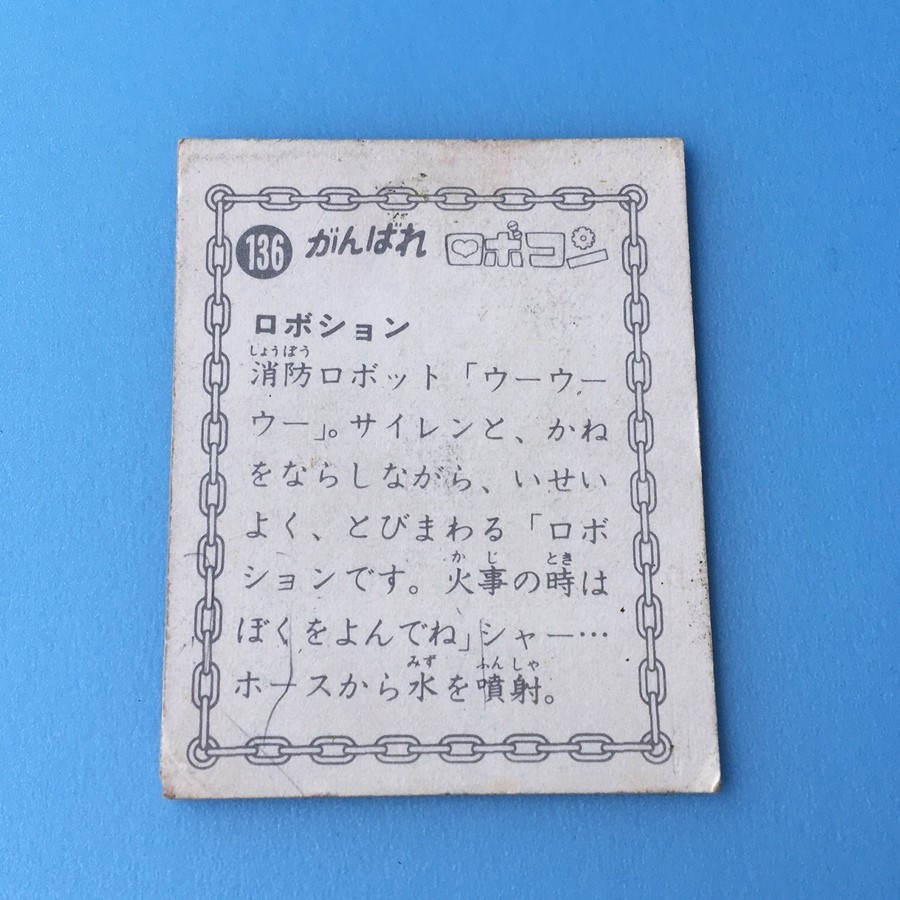 136 がんばれ ロボコン
ロボション
しょうぼう
消防ロボット「ウーウー
ウー」。サイレンと、かね
をならしながら、いせい
よく、とびまわる「ロボ
かじ とき
ションです。火事の時は
ぼくをよんでね」シャー…
みず ふんしゃ
ホースから水を噴射。